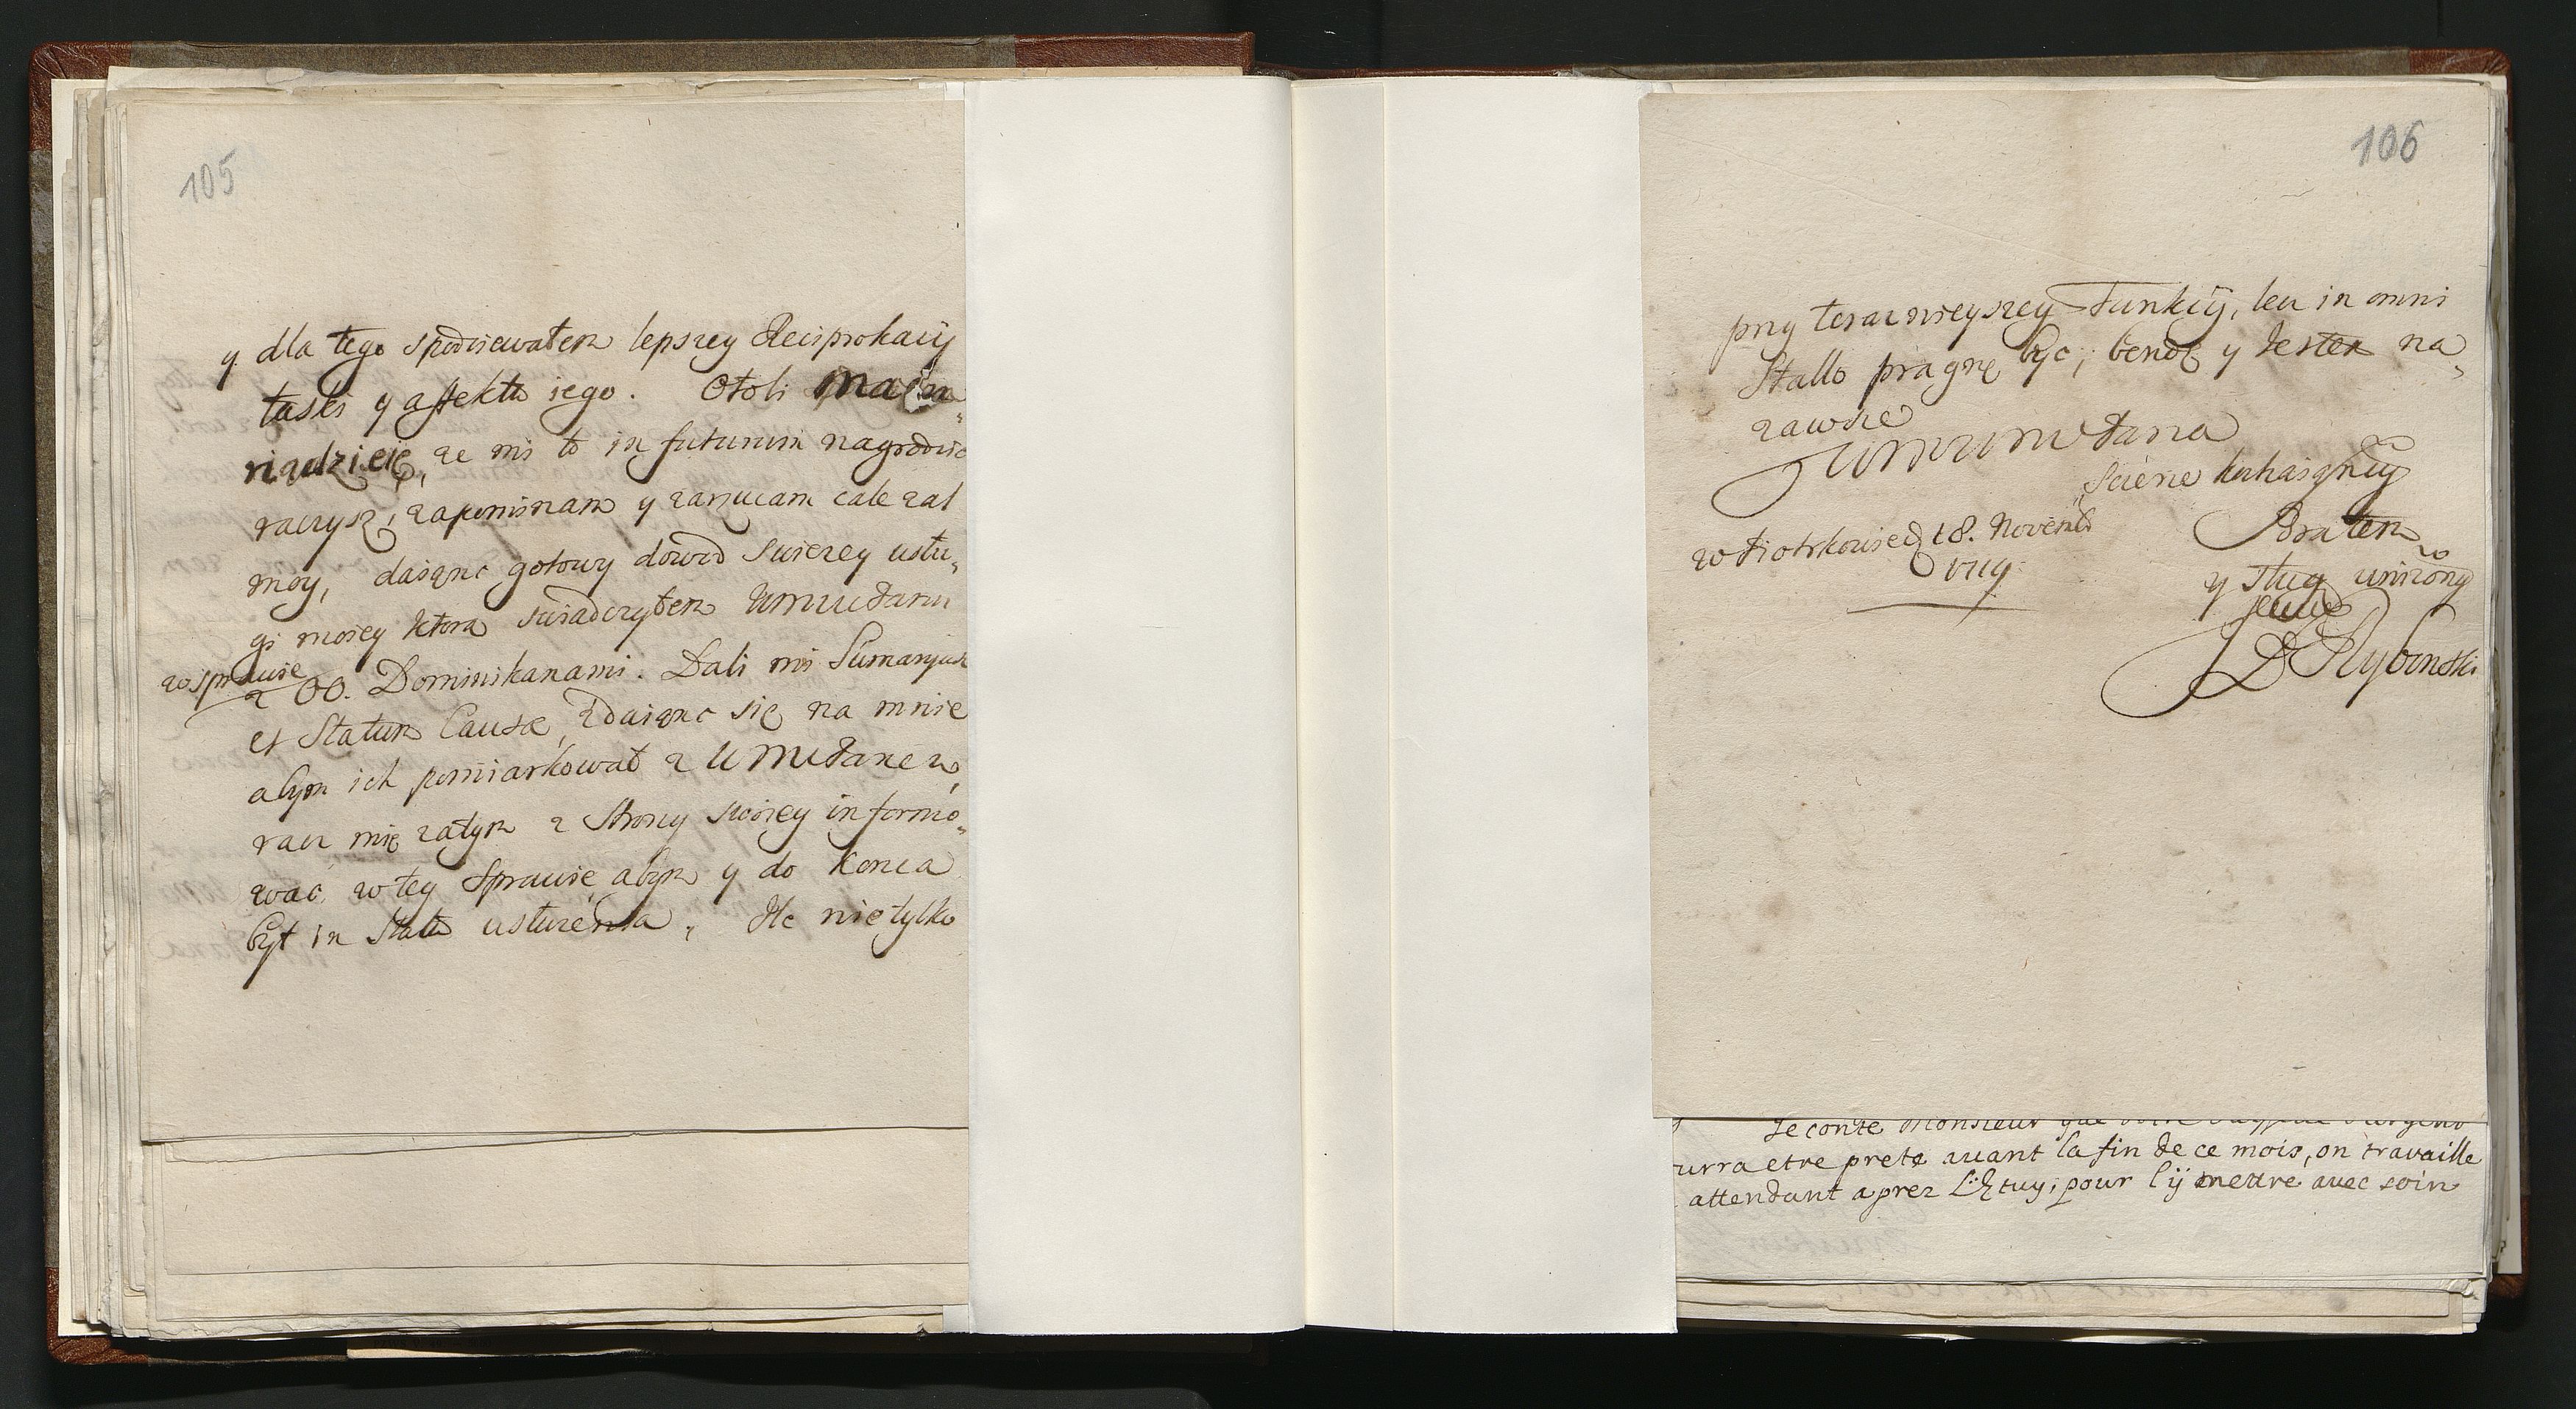 105
y dla tego spodziewałem lepszey Reciprokacij
łaski y affektu iego. Otoli maiąc
nadzieię, że mi to in futurum nagrodzić
raczysz, zapominam y zarzucam cale żal
moy, daiąnc gotowy dowod swiezey usłu„
gi moiey ktora swiadczyłem WMMcPanu
w sprawie
z OO. Dominikanami. Dali mi Sumaryusz
et Statum Causæ, zdaiąnc się na mnie
abym ich pomiarkował z WMMcPanem,
racz mię zatym z Strony swoiey informo„
wać w tey Sprawie, abym y do konca
był in Statu usłużenia. Ile nie tylko
106
przy teraznieyszey Funkcij, lecz in omni
Stallo pragnę byc, bendę y Jestem na„
zawsze
WMMM Pana
Sczerze kochaiącym
Bratem
w Piotrkowie d 18. Novemb
1719
y sługą unizonym
JRybinski
Je conte Monsieur que
urra etre prete auant la fin de ce mois, on travaille
attendant aprez L'Etuy, pour l'ÿ mettre avec soin